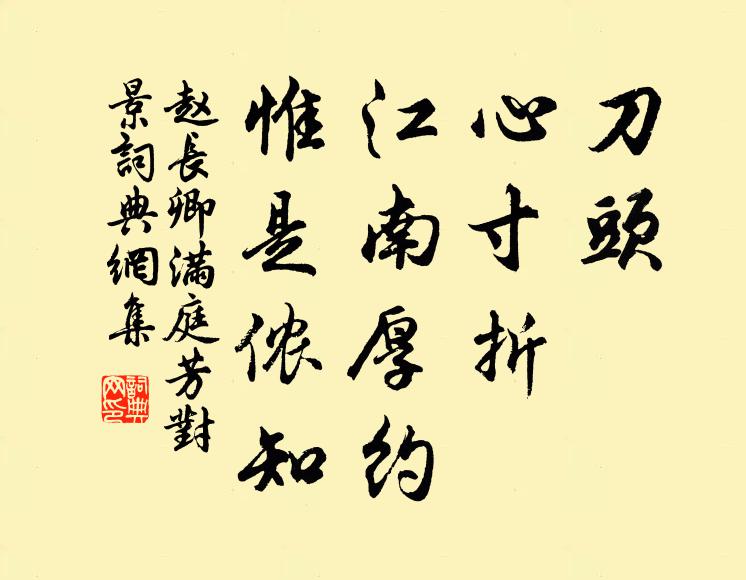 刀頭
心寸折
江南厚约
惟是侬知
赵長卿满庭芳對
景詞典網集
詞典
网印